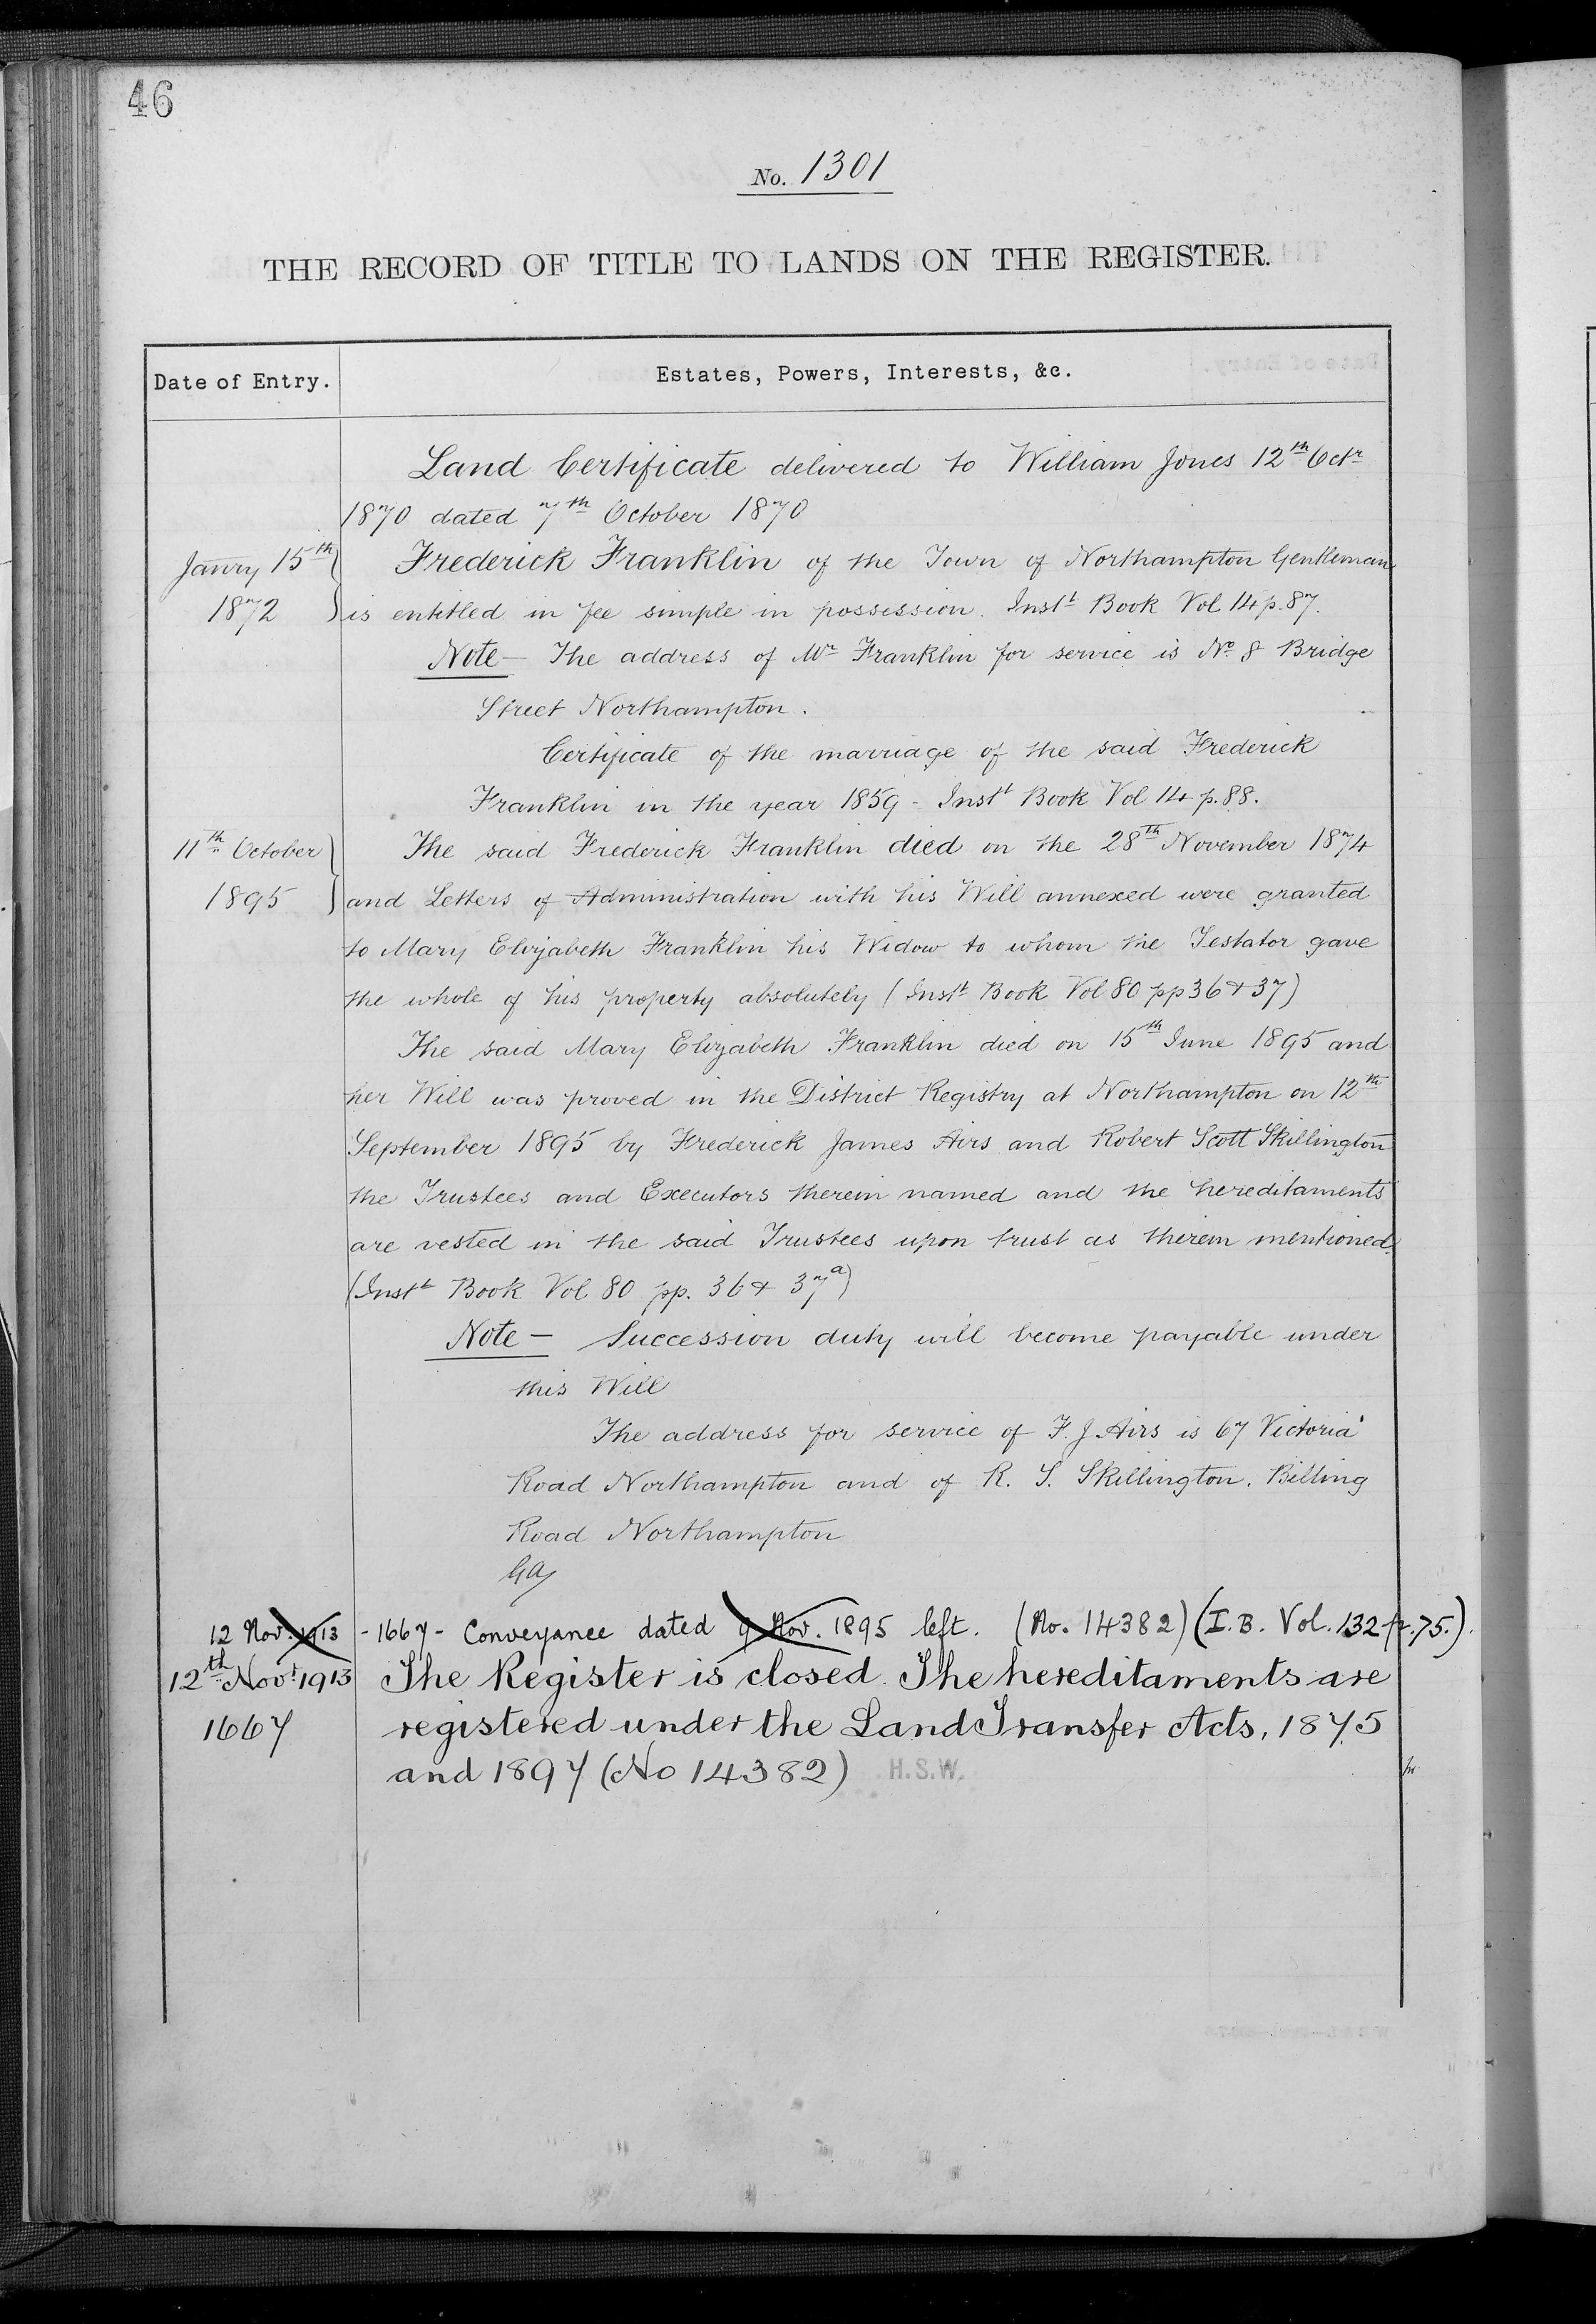 46
No. 1301
THE RECORD OF TITLE TO LANDS ON THE REGISTER.
Date of Entry.
Estates, Powers, Interests, &c.
Land Certificate delivered to William Jones 12th Octr
1870 dated 7th October 1870
Janry 15th
Frederick Franklin of the Town of Northampton Gentleman
1872
is entitled in fee simple in possession. Instt Book Vol 14 p. 87.
Note - The address of Mr Franklin for service is No 8 Bridge
Street Northampton.
Certificate of the marriage of the said Frederick
Franklin in the year 1859 - Instt Book Vol 14 p. 88.
11th October
The said Frederick Franklin died on the 28th November 1874
1895
and Letters of Administration with his Will annexed were granted
to Mary Elizabeth Franklin his Widow to whom the Testator gave
the whole of his property absolutely (Instt Book Vol 80 pp 36 & 37)
The said Mary Elizabeth Franklin died on 15th June 1895 and
her Will was proved in the District Registry at Northampton on 12th
September 1895 by Frederick James Airs and Robert Scott Skillington
the Trustees and Executors therein named and the hereditaments
are vested in the said Trustees upon trust as therein mentioned.
(Instt Book Vol 80 pp. 36 & 37a)
Note - Succession duty will become payable under
this Will
The address for service of F. J. Airs is 67 Victoria
Road Northampton and of R. S. Skillington. Billing
Road Northampton
12 Nov. 1913
- 1667 - Conveyance dated 9 Nov. 1895 left. (No. 14382) (I.B. Vol. 132 p. 75.).
12th Novr 1913
The Register is closed. The hereditaments are
1667
registered under the Land Transfer Acts, 1875
and 1897 (No 14382) H.S.W.